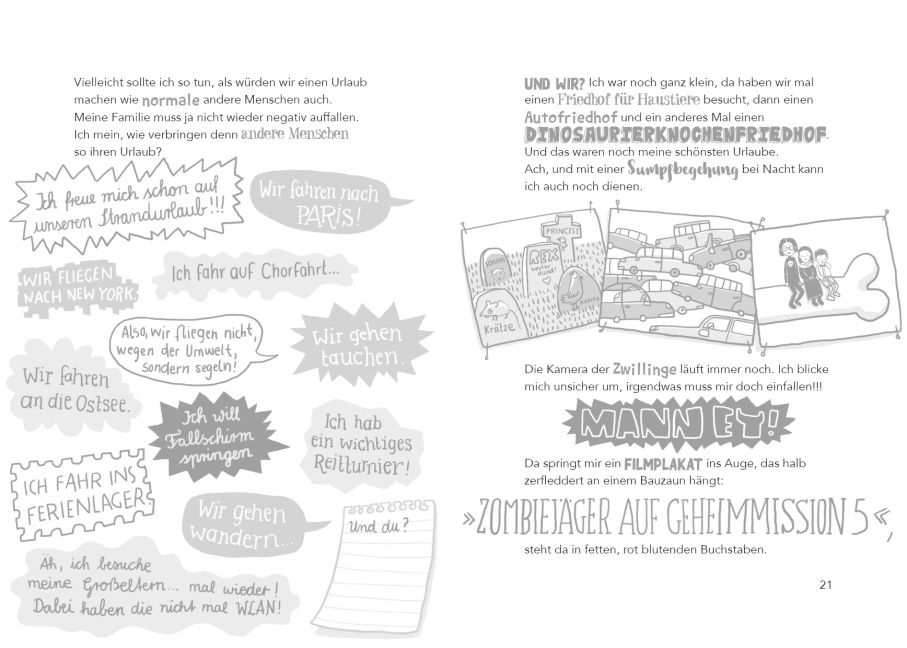 Vielleicht sollte ich so tun, als würden wir einen Urlaub
machen wie normale andere Menschen auch.
Meine Familie muss ja nicht wieder negativ auffallen.
Ich mein, wie verbringen denn andere Menschen
so ihren Urlaub?
Ich freue mich schon auf
unseren Strandurlaub!!!
Wir fahren nach
PARIS!
WIR FLIEGEN
NACH NEW YORK.
Ich fahr auf Chorfahrt...
Also, wir fliegen nicht,
wegen der Umwelt,
sondern segeln!
Wir gehen
tauchen.
Wir fahren
an die Ostsee.
Ich will
Fallschirm
springen
Ich hab
ein wichtiges
Reitturnier!
ICH FAHR INS
FERIENLAGER.
Wir gehen
wandern...
Und du?
Äh, ich besuche
meine Großeltern... mal wieder!
Dabei haben die nicht mal WLAN!
UND WIR? Ich war noch ganz klein, da haben wir mal
einen Friedhof für Haustiere besucht, dann einen
Autofriedhof und ein anderes Mal einen
DINOSAURIERKNOCHENFRIEDHOF.
Und das waren noch meine schönsten Urlaube.
Ach, und mit einer Sumpfbegehung bei Nacht kann
ich auch noch dienen.
PRINCESS
REX
Krätze
Die Kamera der Zwillinge läuft immer noch. Ich blicke
mich unsicher um, irgendwas muss mir doch einfallen!!!
MANN EY!
Da springt mir ein FILMPLAKAT ins Auge, das halb
zerfleddert an einem Bauzaun hängt:
»ZOMBIEJÄGER AUF GEHEIMMISSION 5«,
steht da in fetten, rot blutenden Buchstaben.
21